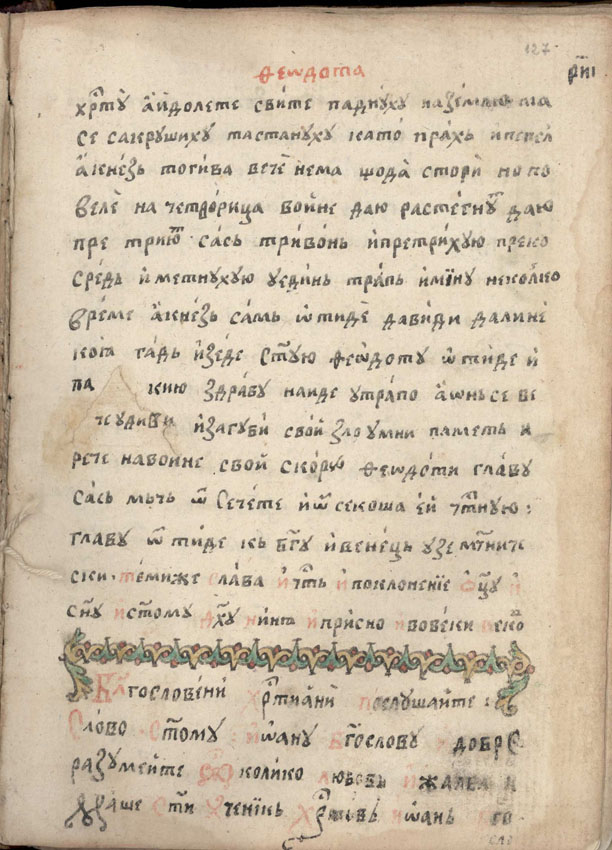 127
ѳеѡдота
рк҃і
хрⷭ҇тꙋ а҆и҆долете свите паднꙋхꙋ на землю та
се сакрꙋшихꙋ та станꙋхꙋ като прахь и҆ пепел
а҆ кнезь тогива вече нема щода стори но по
веле на четворица войне даю растегнꙋⷮ даю
пре трию сась тривонь и҆ претрихꙋю преко
средь и҆ метнꙋхꙋю ꙋединь трапь и҆ минꙋ неколко
време а҆ кнезь самь ѿтиде да види далине
коꙗ гадь изеде ст҃ꙋю ѳеѡдотꙋ ѿтиде и҆
па кию здравꙋ наиде ꙋ трапо а҆ ѡнь се ве
че ꙋдиви и҆ загꙋби свой злоꙋмни паметь и
рече на воине свой скорѡ ѳеѡдоти главꙋ
сась мьчь ѿсечете и҆ ѿсекоша ей чⷭ҇тнꙋю:
главꙋ ѿтиде кь бг҃ꙋ и҆ венець ꙋзе мч҃ниче
ски. темиже слава и҆ чⷭ҇ть и҆ поклоненїе ѻц҃ꙋ и҆
сн҃ꙋ и҆ ст҃омꙋ дх҃ꙋ нинѣ и҆ присно и҆ вовеки веко
Бл҃гословени хрⷭ҇тиани послꙋшайте:
Слово ст҃омꙋ иѡанꙋ бг҃ословꙋ и҆ добре
разꙋмейте колико любовь и҆ жалба и
маше ст҃и ꙋченикь хрⷭ҇товь иѡань бго
сло